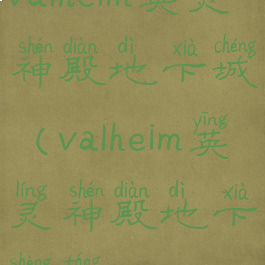 valheim英灵
shén diàn dì xià chéng
神殿地下城
yīng
(valheim英
líng shén diàn dì xià
灵神殿地下
shèng táng